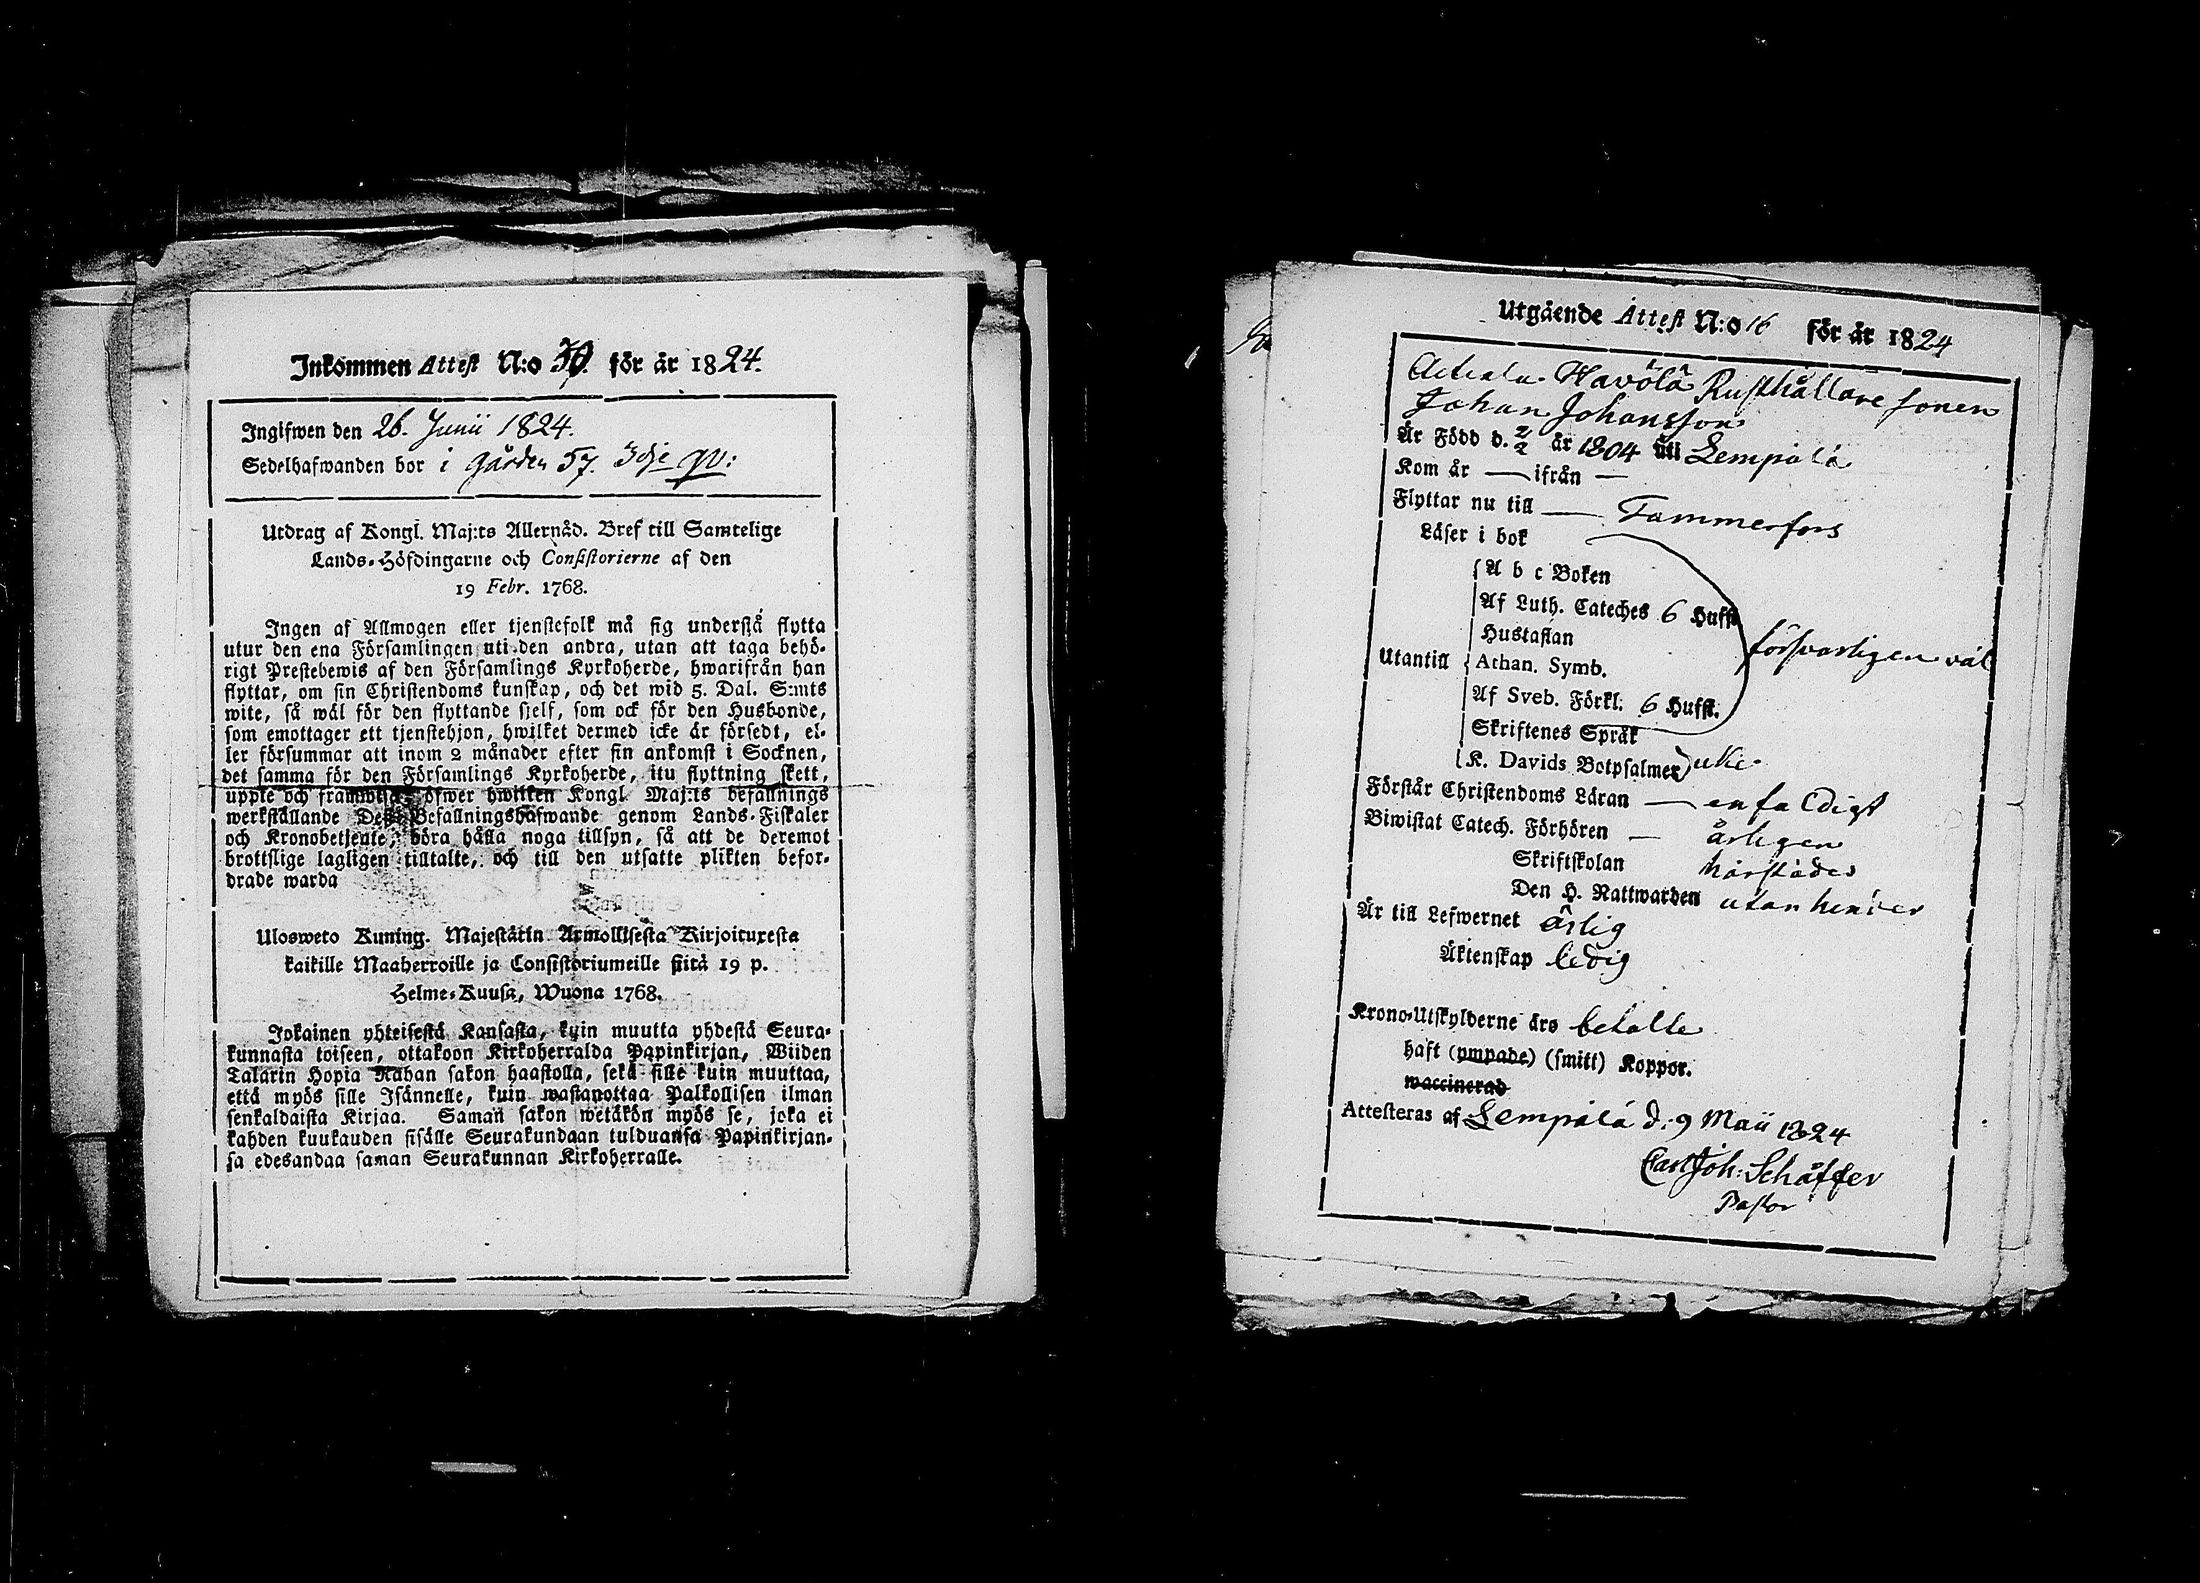 Inkommen Attest N:o 30. för år 1824.
Ingifwen den 26. Junii 1824.
Sedelhafwanden bor i gården 57. 3dje qv:
Utdrag af Kongl. Maj:ts Allernåd. Bref till Samtelige
Lands-Höfdingarne och Consistorierne af den
19 Febr. 1768.
Ingen af Allmogen eller tjenstefolk må sig understå flytta
utur den ena Församlingen uti den andra, utan att taga behö-
rigt Prestebewis af den Församlings Kyrkoherde, hwarifrån han
flyttar, om sin Christendoms kunskap, och det wid 5. Dal. S:mts
wite, så wäl för den flyttande sjelf, som ock för den Husbonde,
som emottager ett tjenstehjon, hwilket dermed icke är försedt, el-
ler försummar att inom 2 månader efter sin ankomst i Socknen,
det samma för den Församlings Kyrkoherde, itu flyttning skett,
uppte och framwisa, öfwer hwilken Kongl. Maj:ts befallnings
werkställande Dess Befallningshafwande genom Lands-Fiskaler
och Kronobetjente, böra hålla noga tillsyn, så att de deremot
brottslige lagligen tilltalte, och till den utsatte plikten befor-
drade warda
Ulosweto Kuning. Majestätin Armollisesta Kirjoituxesta
kaikille Maaherroille ja Consistoriumeille siitä 19 p.
Helme-Kuusa, Wuona 1768.
Jokainen yhteisestä Kansasta, kuin muutta yhdestä Seura-
kunnasta toiseen, ottakoon Kirkoherralda Papinkirjan, Wiiden
Talarin Hopia Rahan sakon haastolla, sekä sille kuin muuttaa,
että myös sille Isännelle, kuin wastanottaa Palkollisen ilman
senkaldaista Kirjaa. Saman sakon wetäkön myös se, joka ei
kahden kuukauden sisälle Seurakundaan tulduansa Papinkirjan-
sa edesandaa saman Seurakunnan Kirkoherralle.
Utgående Attest N:o 16 för år 1824
Havölä Rusthållare sonen
Johan Johansson
Är Född d. 2/2 år 1804 uti Lempälä
Kom år — ifrån —
Flyttar nu till — Tammerfors
Läser i bok
A b c Boken
Af Luth. Cateches 6 Hufst
Hustaflan
Utantill Athan. Symb. försvarligen väl
Af Sveb. Förkl: 6 Hufst.
Skriftenes Språk
K. Davids Botpsalmer icke
Förstår Christendoms Läran — enfaldigt
Biwistat Catech. Förhören — årligen
Skriftskolan härstädes
Den H. Nattwarden utan hinder
Är till Lefwernet ärlig
Äktenskap ledig
Krono-Utskylderne äro betalte
haft (ympade) (smitt) Koppor.
waccinerad
Attesteras af Lempälä d. 9 Maii 1824
Carl Joh: Schäffer
Pastor